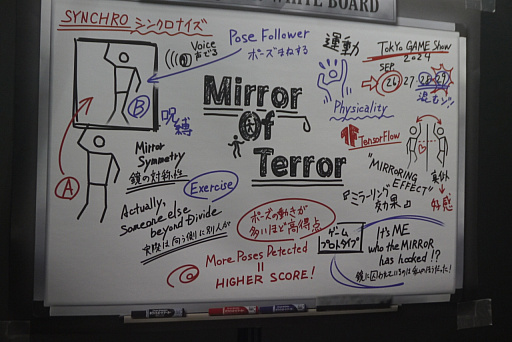 WHITE BOARD
SYNCHRO シンクロナイズ
Voice
声でる
Pose Follower
ポーズまねする
運動
Physicality
TOKYO GAME SHOW
2024
SEP.
26 27 28 29
B
A
呪縛
Mirror
Of
Terror
TensorFlow
Mirror
Symmetry
鏡の対称性
Exercise
Actually,
Someone else
beyond Divide
実際は向う側に別人が
ポーズの動きが
多いほど高得点
More Poses Detected
=
HIGHER SCORE!
"MIRRORING
EFFECT"
ミラーリング
効果
好感
ゲーム
プロトタイプ
It's ME
who the MIRROR
has hooked!?